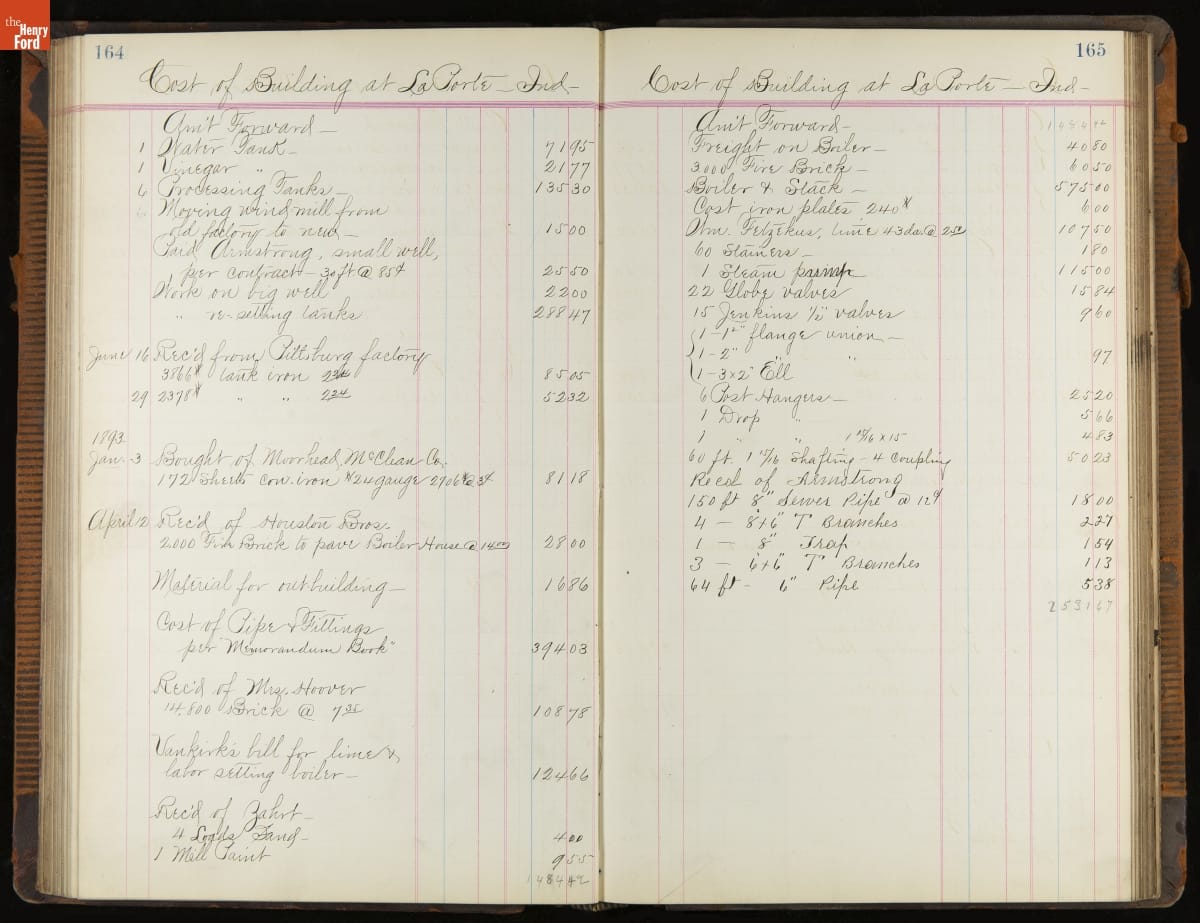 the
Henry
Ford
164
Cost of Building at LaPorte — Ind —
Am't Forward —
1 Water Tank — 71 95
1 Vinegar " 21 77
6 Processing Tanks — 135 30
Moving wind mill from
old factory to new — 15 00
Paid Armstrong, small well,
per contract — 30 ft @ 85¢ 25 50
Work on big well 22 00
" re-setting tanks 288 47
June 16 Rec'd from Pittsburg factory
3866# tank iron 85 05
29 2378# " " 2 24 52 32
1893
Jan. 3 Bought of Moorhead, McClean Co.
172 Sheets cor. iron #24 gauge 2706# @ 3¢ 81 18
April 2 Rec'd of Houston Bros.
2000 Fire Brick to pave Boiler House @ 14 00 28 00
Material for outbuilding — 16 86
Cost of Pipe & Fittings
per "Memorandum Book" 394 03
Rec'd of Mrs. Hoover
14,800 Brick @ 7 35 108 78
Vankirk's bill for lime &
labor setting boiler — 124 66
Rec'd of Zahrt —
4 Loads Sand — 4 00
1 Mill Paint 9 55
1484 42
165
Cost of Building at LaPorte — Ind —
Am't Forward — 1484 42
Freight on Boiler — 40 80
3000 Fire Brick — 60 50
Boiler & Stack — 575 00
Cost iron plates 240# 6 00
Wm. Fetzekus, time 43 da. @ 2 50 107 50
60 Stainers — 1 80
1 Steam pump 115 00
22 Globe valves 15 84
15 Jenkins ½" valves 9 60
1 - 1" flange union —
1 - 2" " " 97
1 - 3x2" Ell
6 Post Hangers — 25 20
1 Drop " 5 66
1 " " 1 15/16 x 15 4 83
60 ft. 1 15/16 Shafting - 4 Coupling 50 23
Recd of Armstrong
150 ft 8" Sewer Pipe @ 12¢ 18 00
4 — 8x6" T Branches 2 27
1 — 8" Trap 1 54
3 — 6x6" T Branches 1 13
64 ft - 6" Pipe 5 38
2531 67